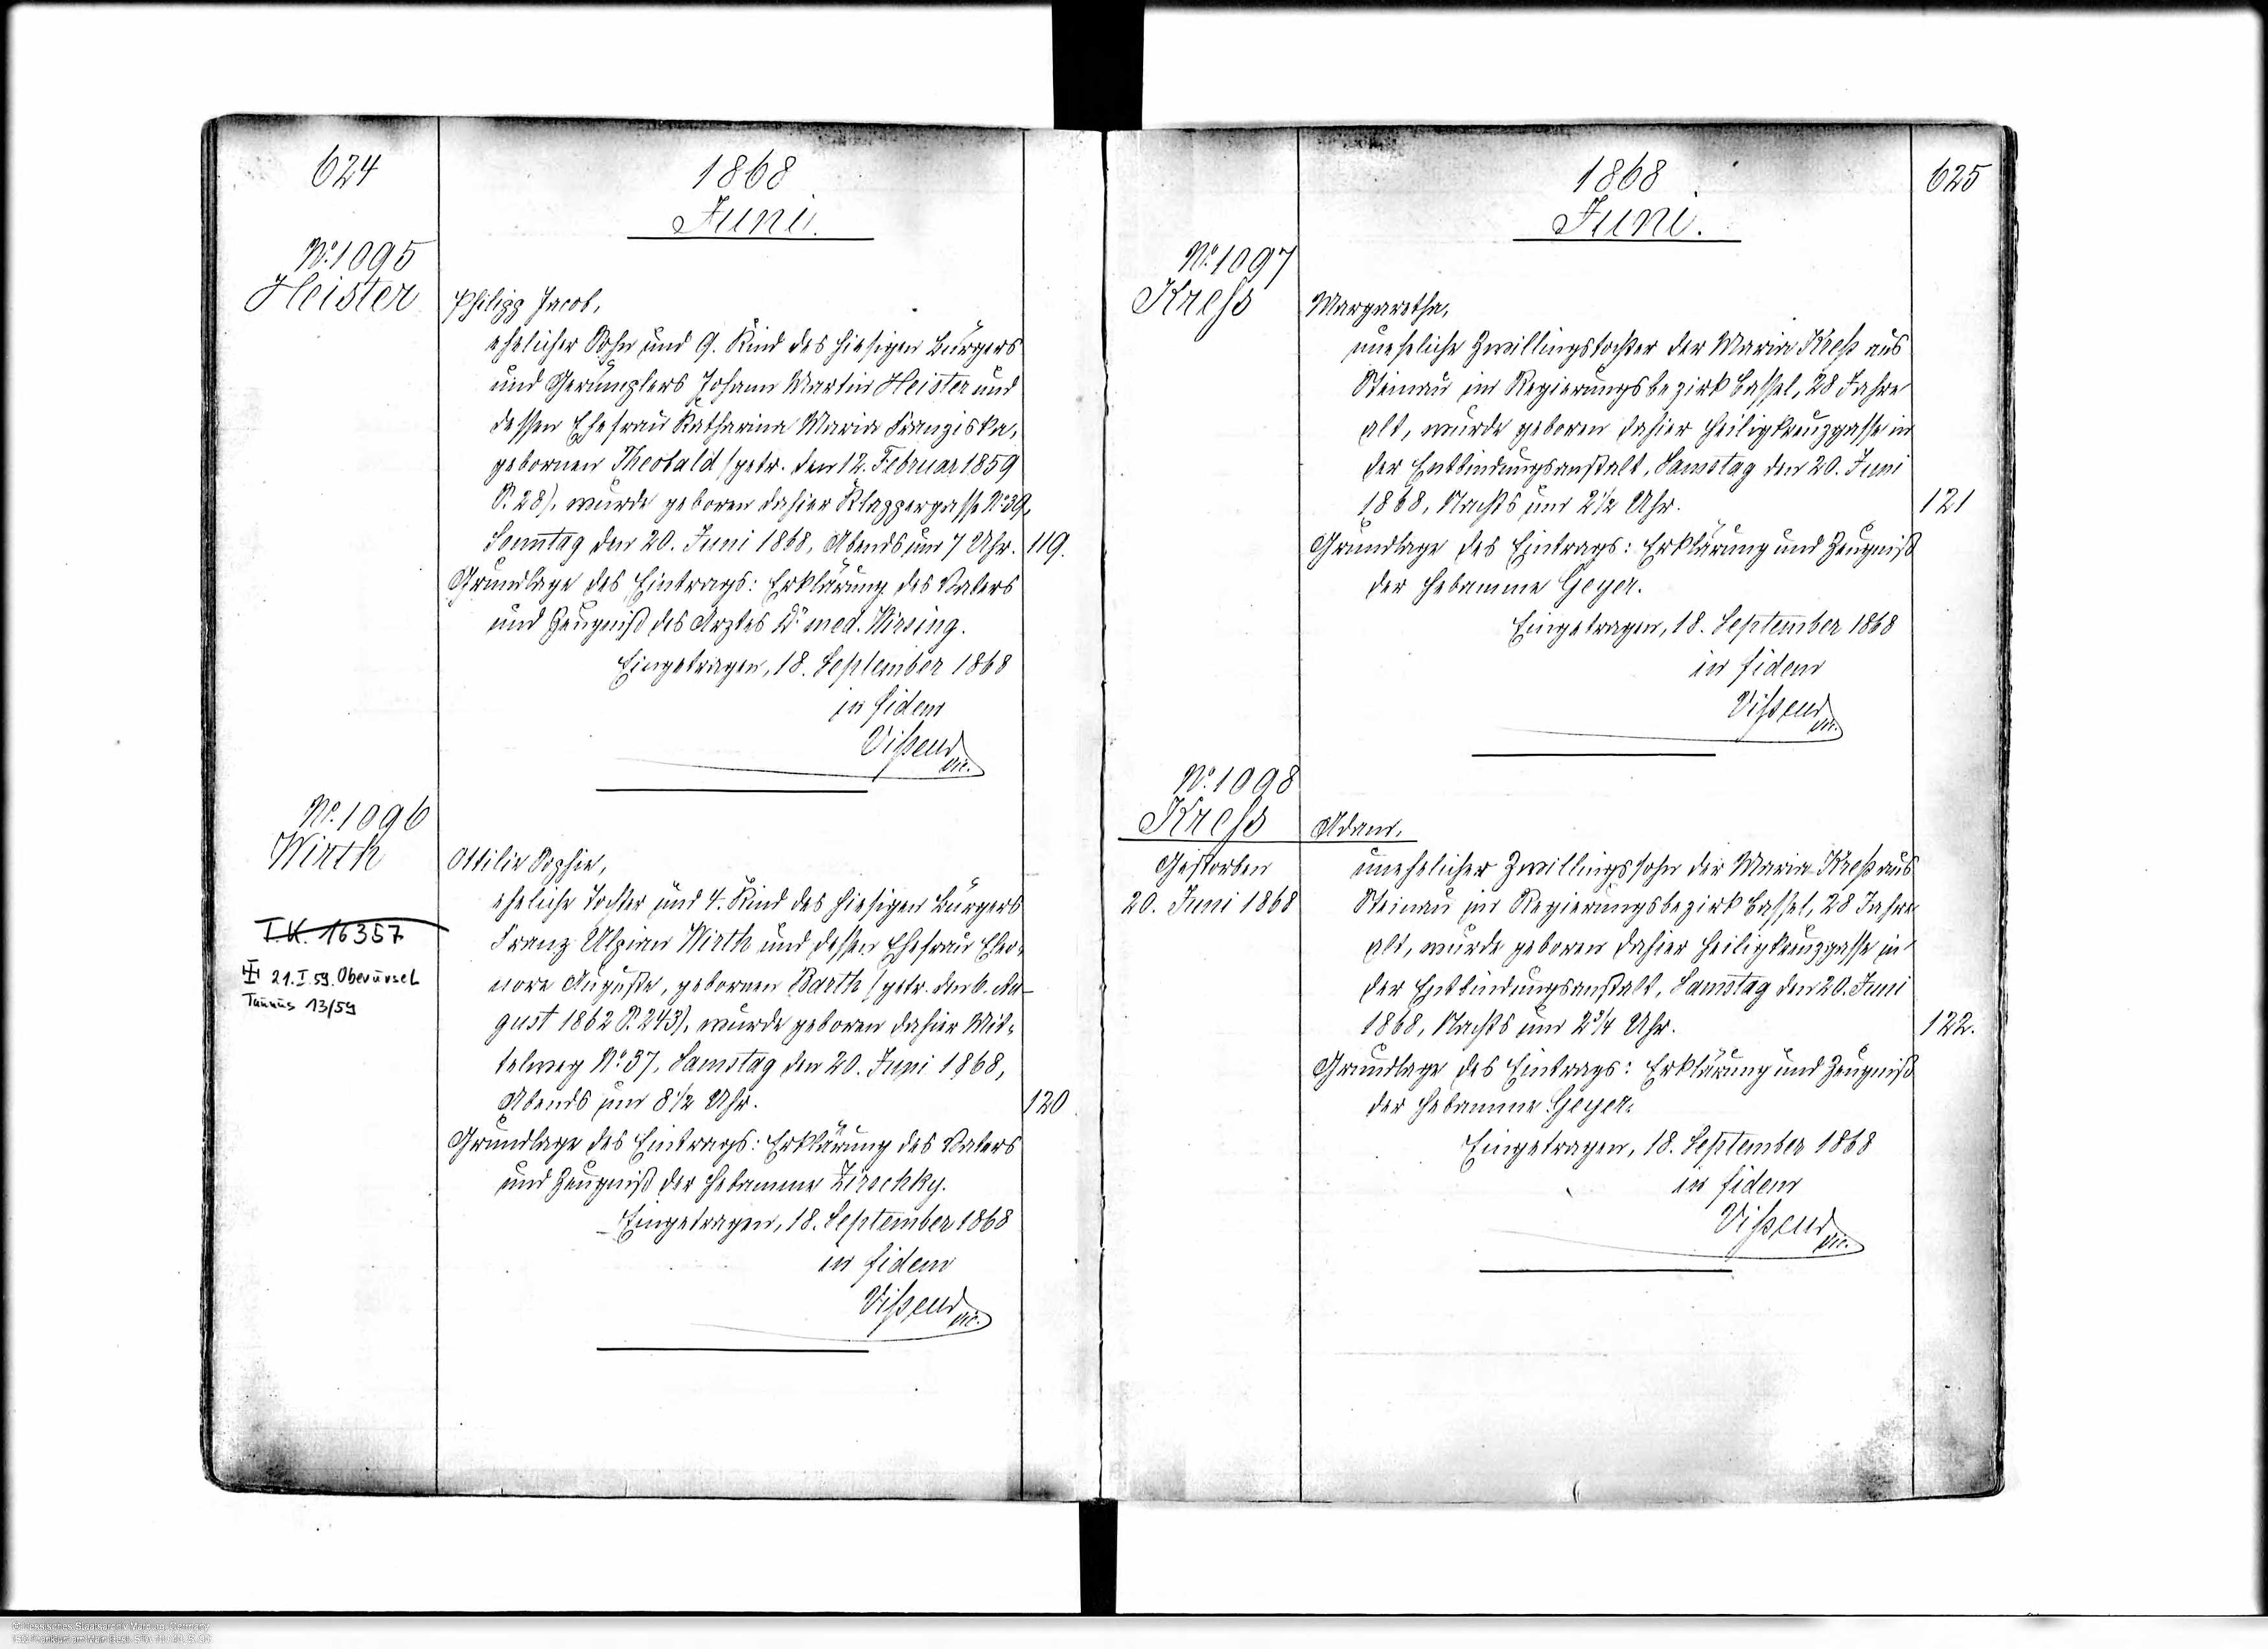 624
1868
Juni.
No. 1095
Heister
Philipp Jacob,
ehelicher Sohn und 9. Kind des hiesigen Bürgers
und Gerümplers Johann Martin Heister und
dessen Ehefrau Katharina Maria Franziska,
gebornen Theobald (getr. den 12. Februar 1859
S. 28), wurde geboren dahier Klappergasse No. 39,
Sonntag den 20. Juni 1868, Abends um 7 Uhr.
119.
Grundlage des Eintrags: Erklärung des Vaters
und Zeugniß des Arztes Dr. med. Wirsing.
Eingetragen, 18. September 1868
in fidem
No. 1096
Wirth
I.K. 16357
21.I.59. Oberursel
Taunus 13/59
Ottilie Sophie,
eheliche Tochter und 4. Kind des hiesigen Bürgers
Franz Ulpian Wirth und dessen Ehefrau Eleo-
nore Auguste, gebornen Barth (getr. den 6. Au-
gust 1862 S. 243), wurde geboren dahier Mit-
telweg No. 37, Samstag den 20. Juni 1868,
Abends um 8 1/2 Uhr.
120
Grundlage des Eintrags: Erklärung des Vaters
und Zeugniß der Hebamme Zirschky.
Eingetragen, 18. September 1868
in fidem
1868
625
Juni.
No. 1097
Kreß
Margaretha,
uneheliche Zwillingstochter der Maria Kreß aus
Steinau im Regierungsbezirk Cassel, 28 Jahre
alt, wurde geboren dahier Heiligkreuzgasse in
der Entbindungsanstalt, Samstag den 20. Juni
1868, Nachts um 2 1/2 Uhr.
121
Grundlage des Eintrags: Erklärung und Zeugniß
der Hebamme Geyer.
Eingetragen, 18. September 1868
in fidem
No. 1098
Kreß
Gestorben
20. Juni 1868
Adam,
unehelicher Zwillingssohn der Maria Kreß aus
Steinau im Regierungsbezirk Cassel, 28 Jahre
alt, wurde geboren dahier Heiligkreuzgasse in
der Entbindungsanstalt, Samstag den 20. Juni
1868, Nachts um 2 3/4 Uhr.
122.
Grundlage des Eintrags: Erklärung und Zeugniß
der Hebamme Geyer.
Eingetragen, 18. September 1868
in fidem